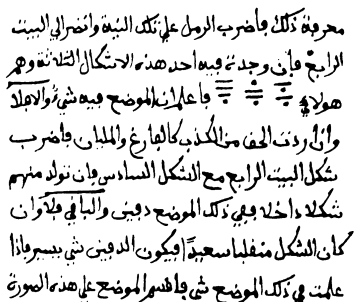 معرفة ذلك فاضرب الرمل على تلك النية وانضر الي البيت
الرابع فان وجدت فيه احد هذه الاشكال الثلاثة وهم
هولاء فاعلم ان الموضع فيه شيء والا فلا
وان اردت الحق من الكذب كالفارغ والمليان فاضرب
شكل البيت الرابع مع الشكل السادس فان تولد منهم
شكلا داخلا ففي ذلك الموضع دفين والباقي فلا وان
كان الشكل منقلبا سعيدا فيكون الدفين شي يسير فاذا
علمت في ذلك الموضع شي فاقسم الموضع علي هذه الصورة